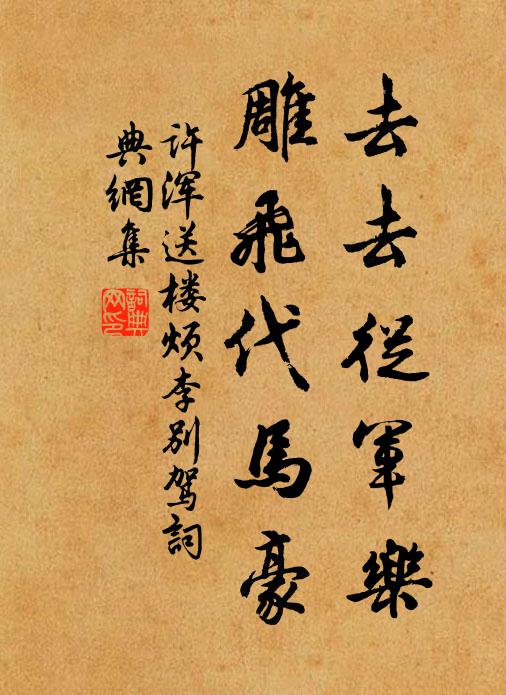 去去從軍樂
雕飛代馬豪
许浑送楼烦李别駕詞
典網集
詞典
网印